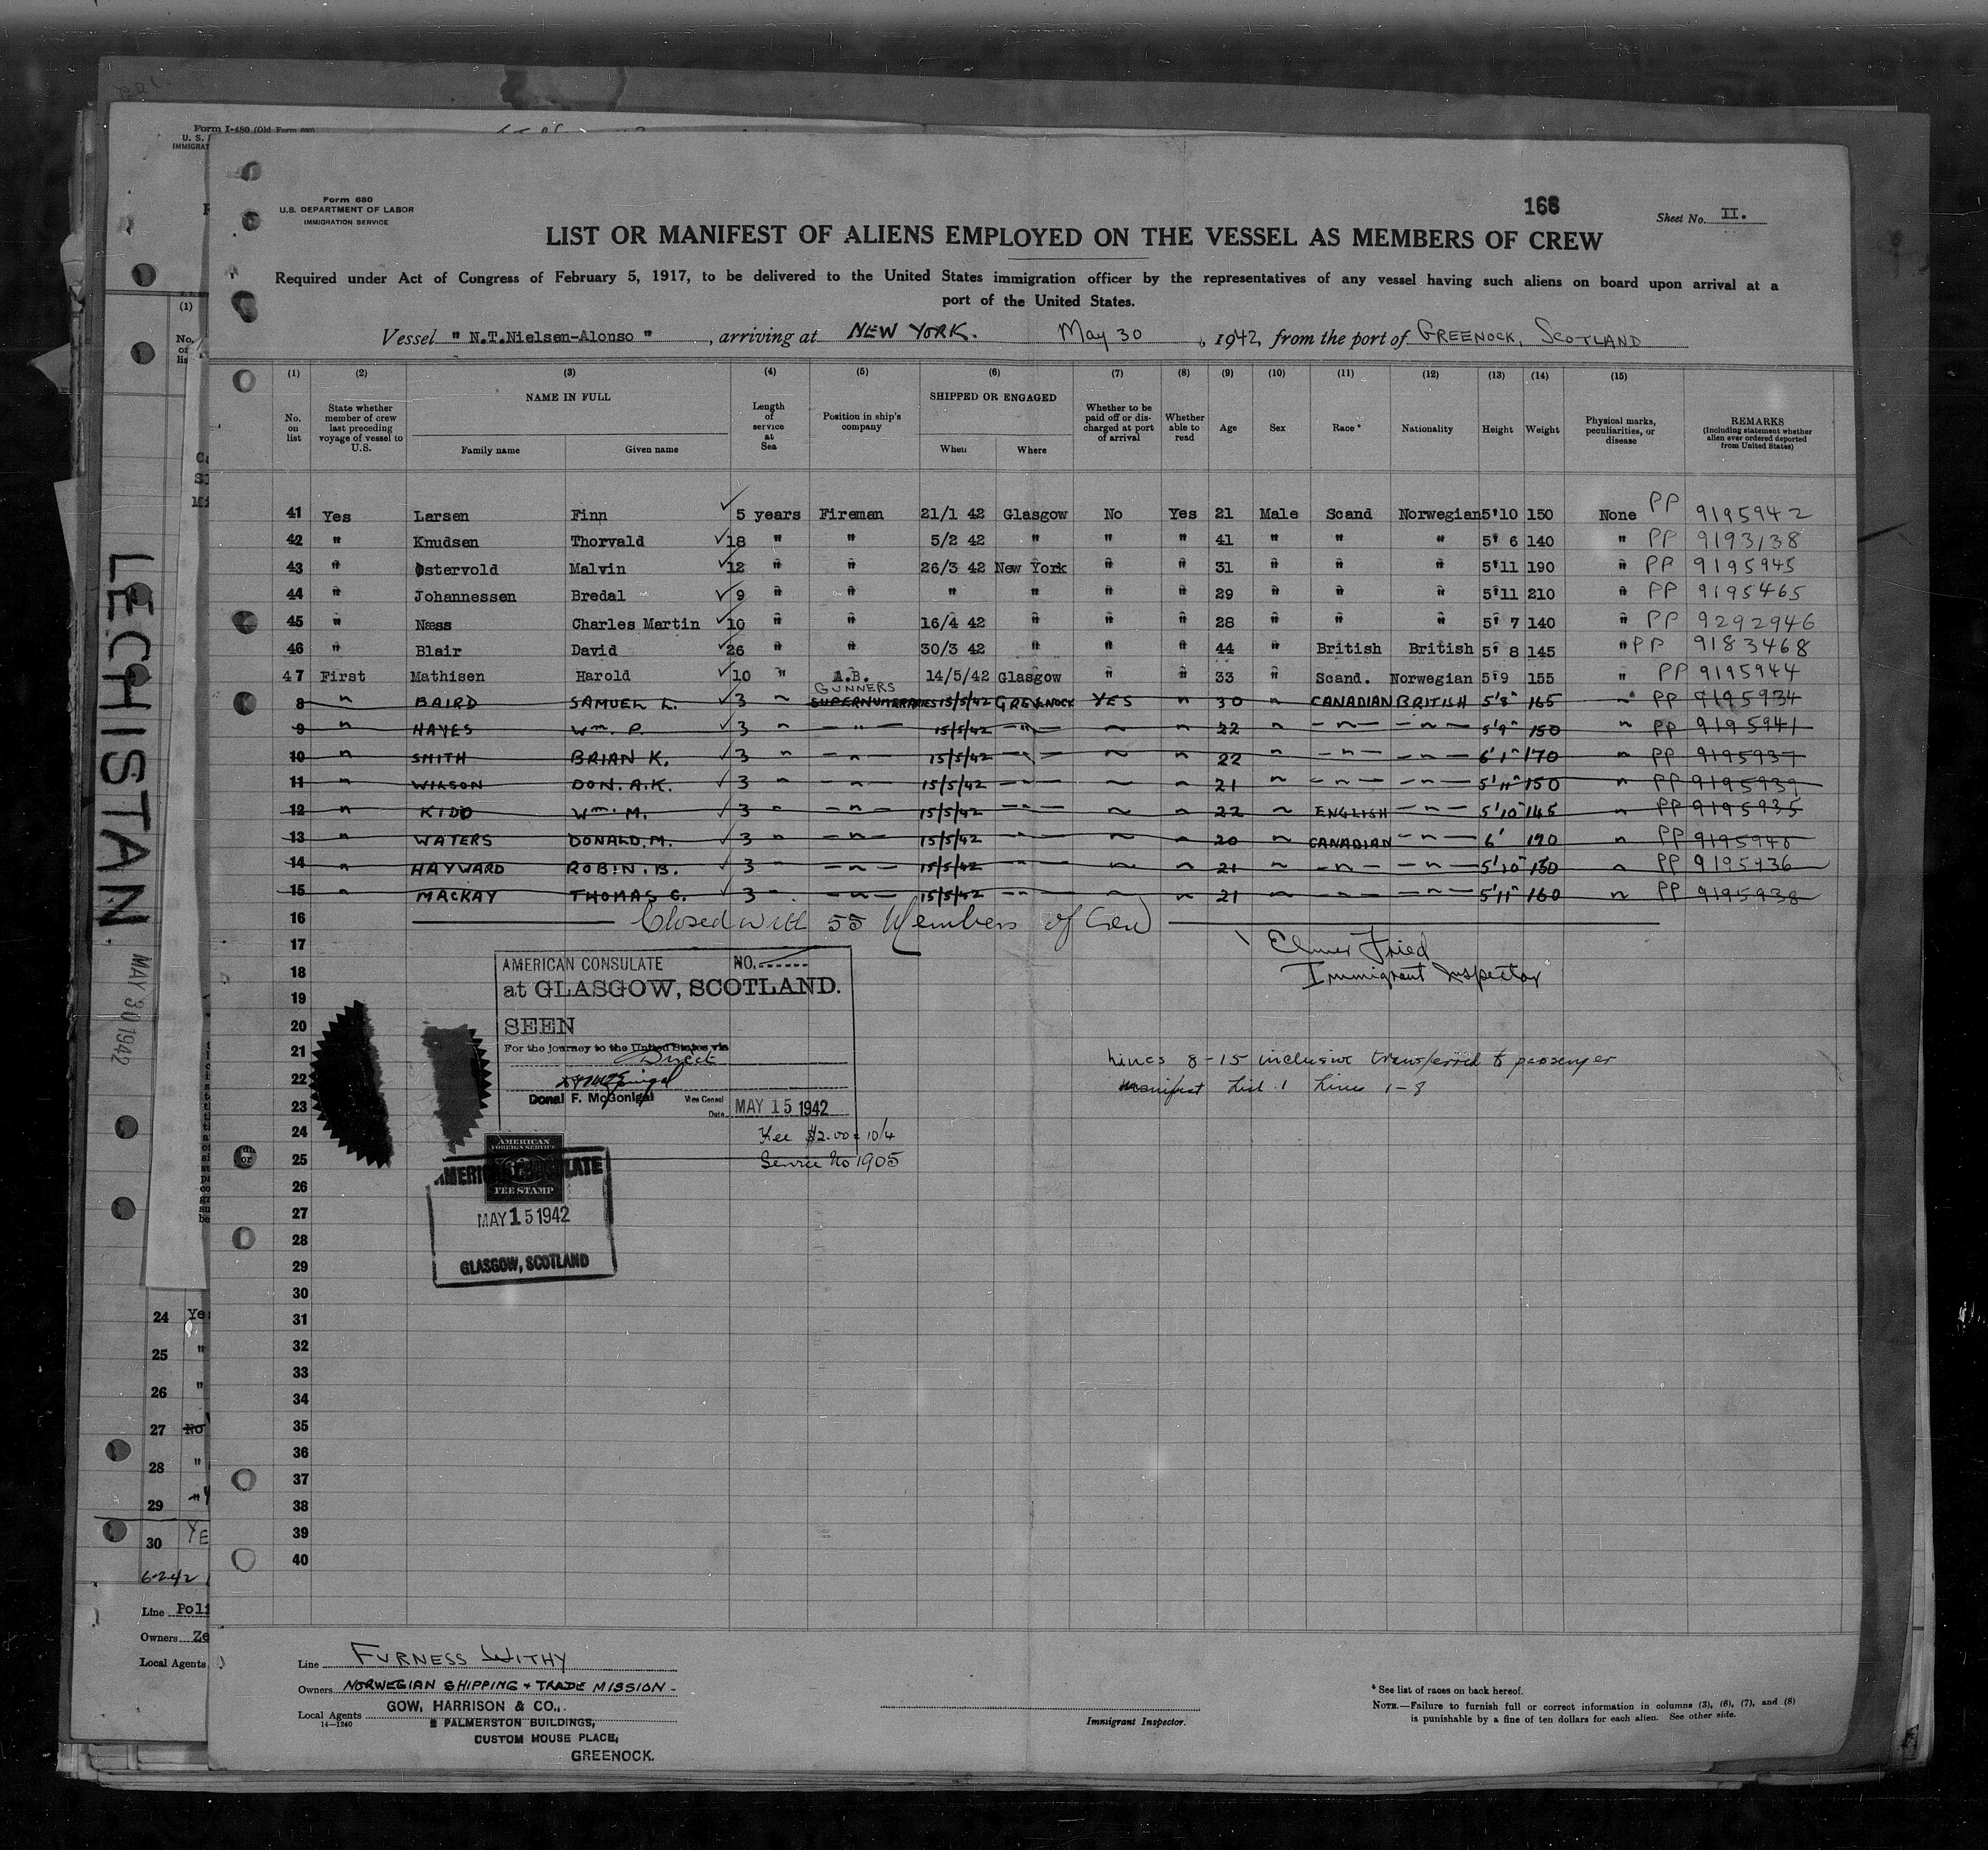 Form I-480 (Old Form 680)
U. S.
IMMIGRAT
Form 680
U.S. DEPARTMENT OF LABOR
IMMIGRATION SERVICE
166
Sheet No. II.
LIST OR MANIFEST OF ALIENS EMPLOYED ON THE VESSEL AS MEMBERS OF CREW
Required under Act of Congress of February 5, 1917, to be delivered to the United States immigration officer by the representatives of any vessel having such aliens on board upon arrival at a
port of the United States.
Vessel "N.T.Nielsen-Alonso", arriving at NEW YORK. May 30, 1942, from the port of GREENOCK, SCOTLAND
(1) (2) (3) (4) (5) (6) (7) (8) (9) (10) (11) (12) (13) (14) (15)
No. on list
State whether member of crew last preceding voyage of vessel to U.S.
NAME IN FULL
Family name Given name
Length of service at Sea
Position in ship's company
SHIPPED OR ENGAGED
When Where
Whether to be paid off or discharged at port of arrival
Whether able to read
Age
Sex
Race*
Nationality
Height
Weight
Physical marks, peculiarities, or disease
REMARKS
(Including statement whether alien ever ordered deported from United States)
41 Yes Larsen Finn 5 years Fireman 21/1 42 Glasgow No Yes 21 Male Scand Norwegian 5'10 150 None PP 9195942
42 " Knudsen Thorvald 18 " " 5/2 42 " " " 41 " " " 5' 6 140 " PP 9193138
43 " Østervold Malvin 12 " " 26/3 42 New York " " 31 " " " 5'11 190 " PP 9195945
44 " Johannessen Bredal 9 " " " " " " 29 " " " 5'11 210 " PP 9195465
45 " Næss Charles Martin 10 " " 16/4 42 " " " 28 " " " 5' 7 140 " PP 9292946
46 " Blair David 26 " " 30/3 42 " " " 44 " British British 5' 8 145 " PP 9183468
47 First Mathisen Harold 10 " A.B. 14/5/42 Glasgow " " 33 " Scand. Norwegian 5'9 155 " PP 9195944
GUNNERS
8 " BAIRD SAMUEL L. 3 " SUPERNUMERARIES 15/5/42 GREENOCK YES " 30 " CANADIAN BRITISH 5'8" 165 " PP 9195934
9 " HAYES Wm. P. 3 " " 15/5/42 " " " 22 " " " 5'9" 150 " PP 9195941
10 " SMITH BRIAN K. 3 " " 15/5/42 " " " 22 " " " 6'1" 170 " PP 9195937
11 " WILSON DON. A.K. 3 " " 15/5/42 " " " 21 " " " 5'11" 150 " PP 9195939
12 " KIDD Wm. M. 3 " " 15/5/42 " " " 22 " ENGLISH " 5'10" 145 " PP 9195935
13 " WATERS DONALD. M. 3 " " 15/5/42 " " " 20 " CANADIAN " 6' 190 " PP 9195940
14 " HAYWARD ROBIN. B. 3 " " 15/5/42 " " " 21 " " " 5'10" 160 " PP 9195936
15 " MACKAY THOMAS G. 3 " " 15/5/42 " " 21 " " 5'11" 160 " PP 9195938
16 Closed with 55 Members of Crew
17 Elmer Fried
18 Immigrant Inspector
19
20
21
22
23
24
25
26
27
28
29
30
31
32
33
34
35
36
37
38
39
40
AMERICAN CONSULATE NO.
at GLASGOW, SCOTLAND.
SEEN
For the journey to the United States via
Direct
Donal F. McGonigal Vice Consul
Date MAY 15 1942
Fee $2.00 = 10/4
Service No 1905
Lines 8-15 inclusive transferred to passenger
manifest List 1 Lines 1-8
AMERICAN
FOREIGN SERVICE
FEE STAMP
AMERICAN CONSULATE
MAY 15 1942
GLASGOW, SCOTLAND
LECHISTAN.
MAY 30 1942
(1)
24 Yes
25 "
26 "
27 No
28 "
29 "
30 YE
6-2-42
Line Poli
Owners Ze
Local Agents
Line FURNESS WITHY
Owners NORWEGIAN SHIPPING + TRADE MISSION-
Local Agents GOW, HARRISON & CO.,
14-1240
PALMERSTON BUILDINGS,
CUSTOM HOUSE PLACE,
GREENOCK.
Immigrant Inspector.
* See list of races on back hereof.
NOTE.—Failure to furnish full or correct information in columns (3), (6), (7), and (8)
is punishable by a fine of ten dollars for each alien. See other side.